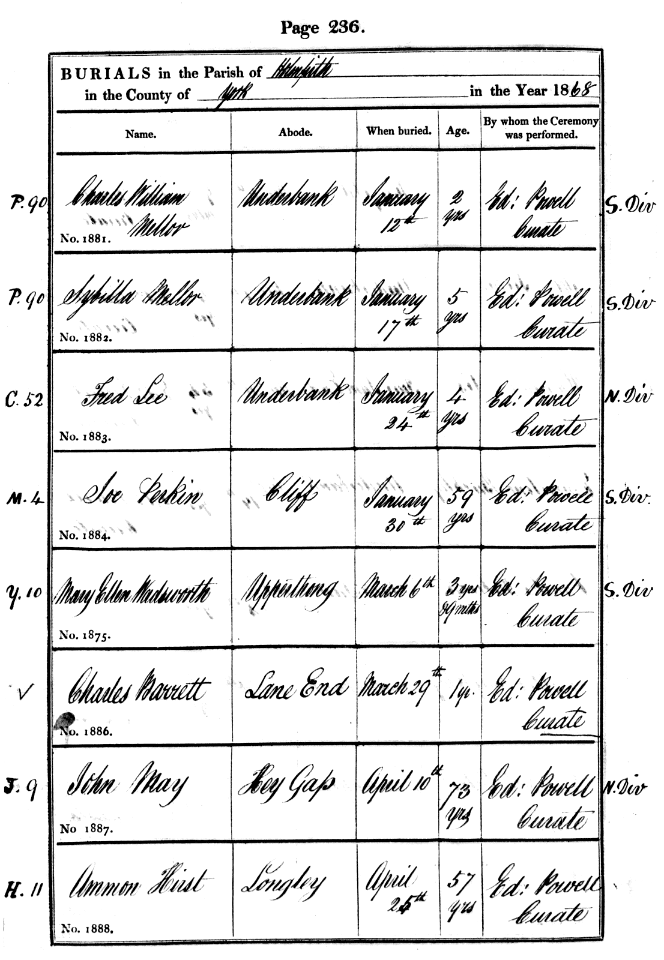 Page 236.
BURIALS in the Parish of Holmfirth
in the County of York in the Year 1868
Name. Abode. When buried. Age. By whom the Ceremony was performed.
P. 90 Charles William Underbank January 2 Ed: Powell S. Div
Mellor 12th yrs Curate
No. 1881.
P. 90 Sybilla Mellor Underbank January 5 Ed: Powell S. Div
17th yrs Curate
No. 1882.
C. 52 Fred Lee Underbank January 4 Ed: Powell N. Div
24th yrs Curate
No. 1883.
M. 4 Joe Perkin Cliff January 59 Ed: Powell S. Div.
30th yrs Curate
No. 1884.
Y. 10 Mary Ellen Wadsworth Upperthong March 6th 3 yrs Ed: Powell S. Div
9 mths Curate
No. 1875.
✓ Charles Barrett Lane End March 29th 1 yr. Ed: Powell
Curate
No. 1886.
J. 9 John May Hey Gap April 10th 73 Ed: Powell N. Div
yrs Curate
No 1887.
H. 11 Ammon Hirst Longley April 57 Ed: Powell
25th yrs Curate
No. 1888.